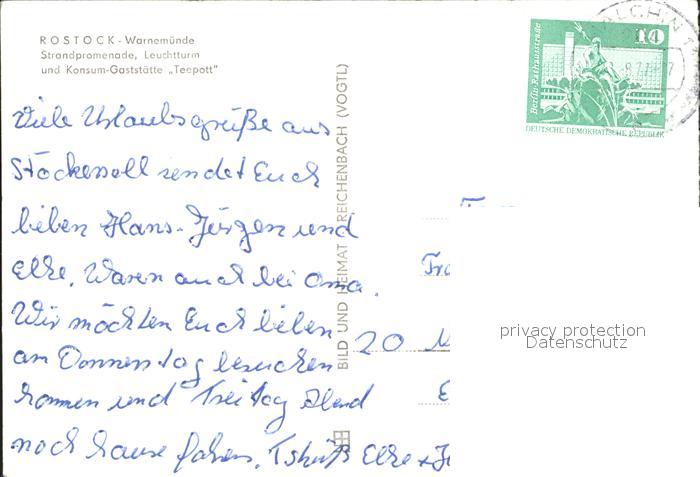 ROSTOCK - Warnemünde
Strandpromenade, Leuchtturm
und Konsum-Gaststätte „Teepott"
Viele Urlaubsgrüße aus
sendet Euch
lieben Hans-Jürgen und
Elke. Waren auch bei Oma.
Wir möchten Euch lieben
am Donnerstag besuchen
kommen und Freitag Abend
noch hause fahren. Tshüß Elke +
BILD UND HEIMAT REICHENBACH (VOGTL)
Berlin-Rathausstraße
10
DEUTSCHE DEMOKRATISCHE REPUBLIK
20
privacy protection
Datenschutz